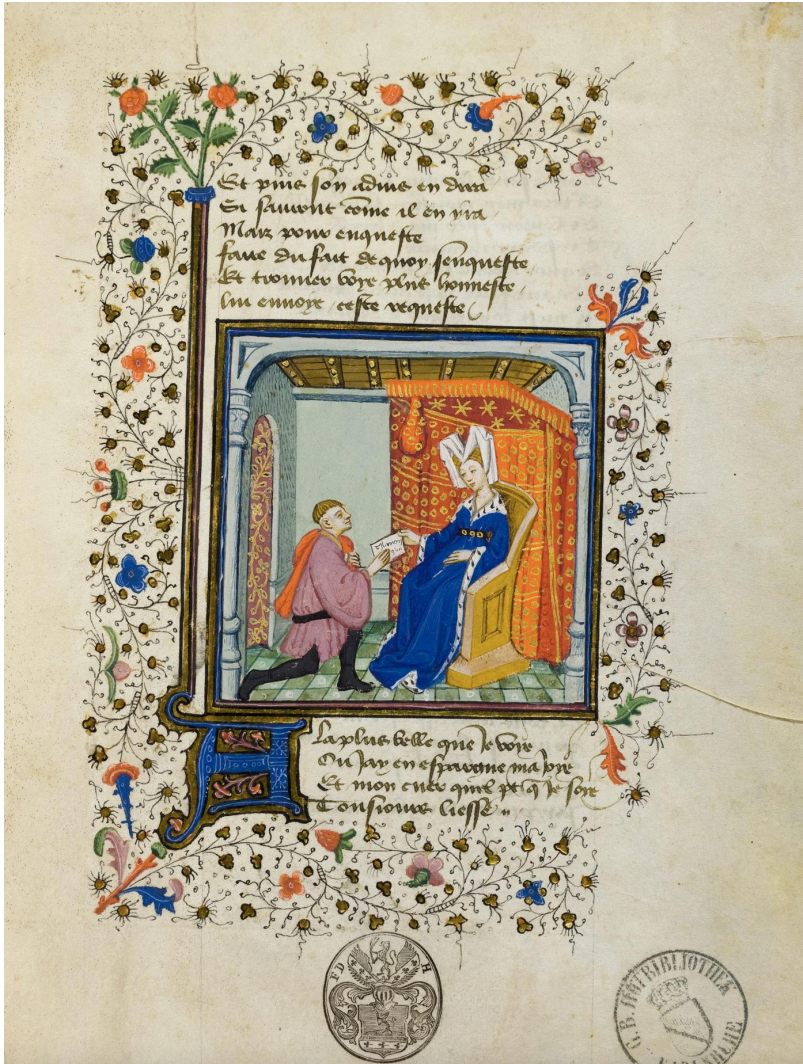 Et puis son aduis en dira
Si sauront come il en yra
Maiz pour enqueste
faire du fait de quoy senqueste
Et trouuer voye plus honneste
lui enuoye ceste requeste
A La plus belle que Je voye
Ou Jay en esparance ma Joye
Et mon cuer quel pt q Je soye
Tousiours liesse
F D H
G. B. HOFBIBLIOTHEK